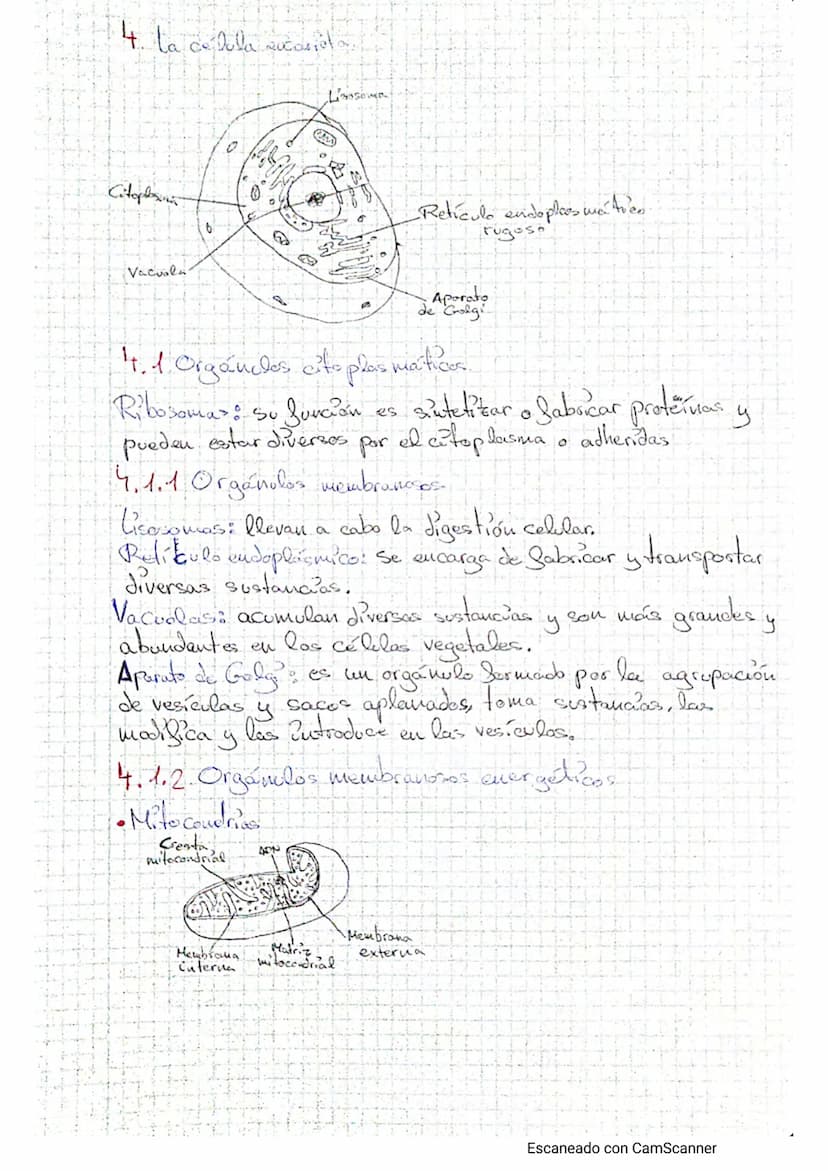 4. La célula eucariota.
Lisosoma
Citoplasma
Retículo endoplasmático
rugoso
Vacuola
Aparato
de Golgi
4.1 Orgánulos citoplasmáticos.
Ribosomas: su función es sintetizar o fabricar proteínas y
pueden estar diversos por el citoplasma o adheridas
4.1.1 Orgánulos membranosos.
Lisosomas: llevan a cabo la digestión celular.
Retículo endoplásmico: se encarga de fabricar y transportar
diversas sustancias.
Vacuolas: acumulan diversas sustancias y son más grandes y
abundantes en las células vegetales.
Aparato de Golgi: es un orgánulo formado por la agrupación
de vesículas y sacos aplanados, toma sustancias, las
modifica y las introduce en las vesículas.
4.1.2. Orgánulos membranosos energéticos
• Mitocondrias
Cresta
mitocondrial
ADN
Membrana
externa
Membrana
interna
Matriz
mitocondrial
Escaneado con CamScanner